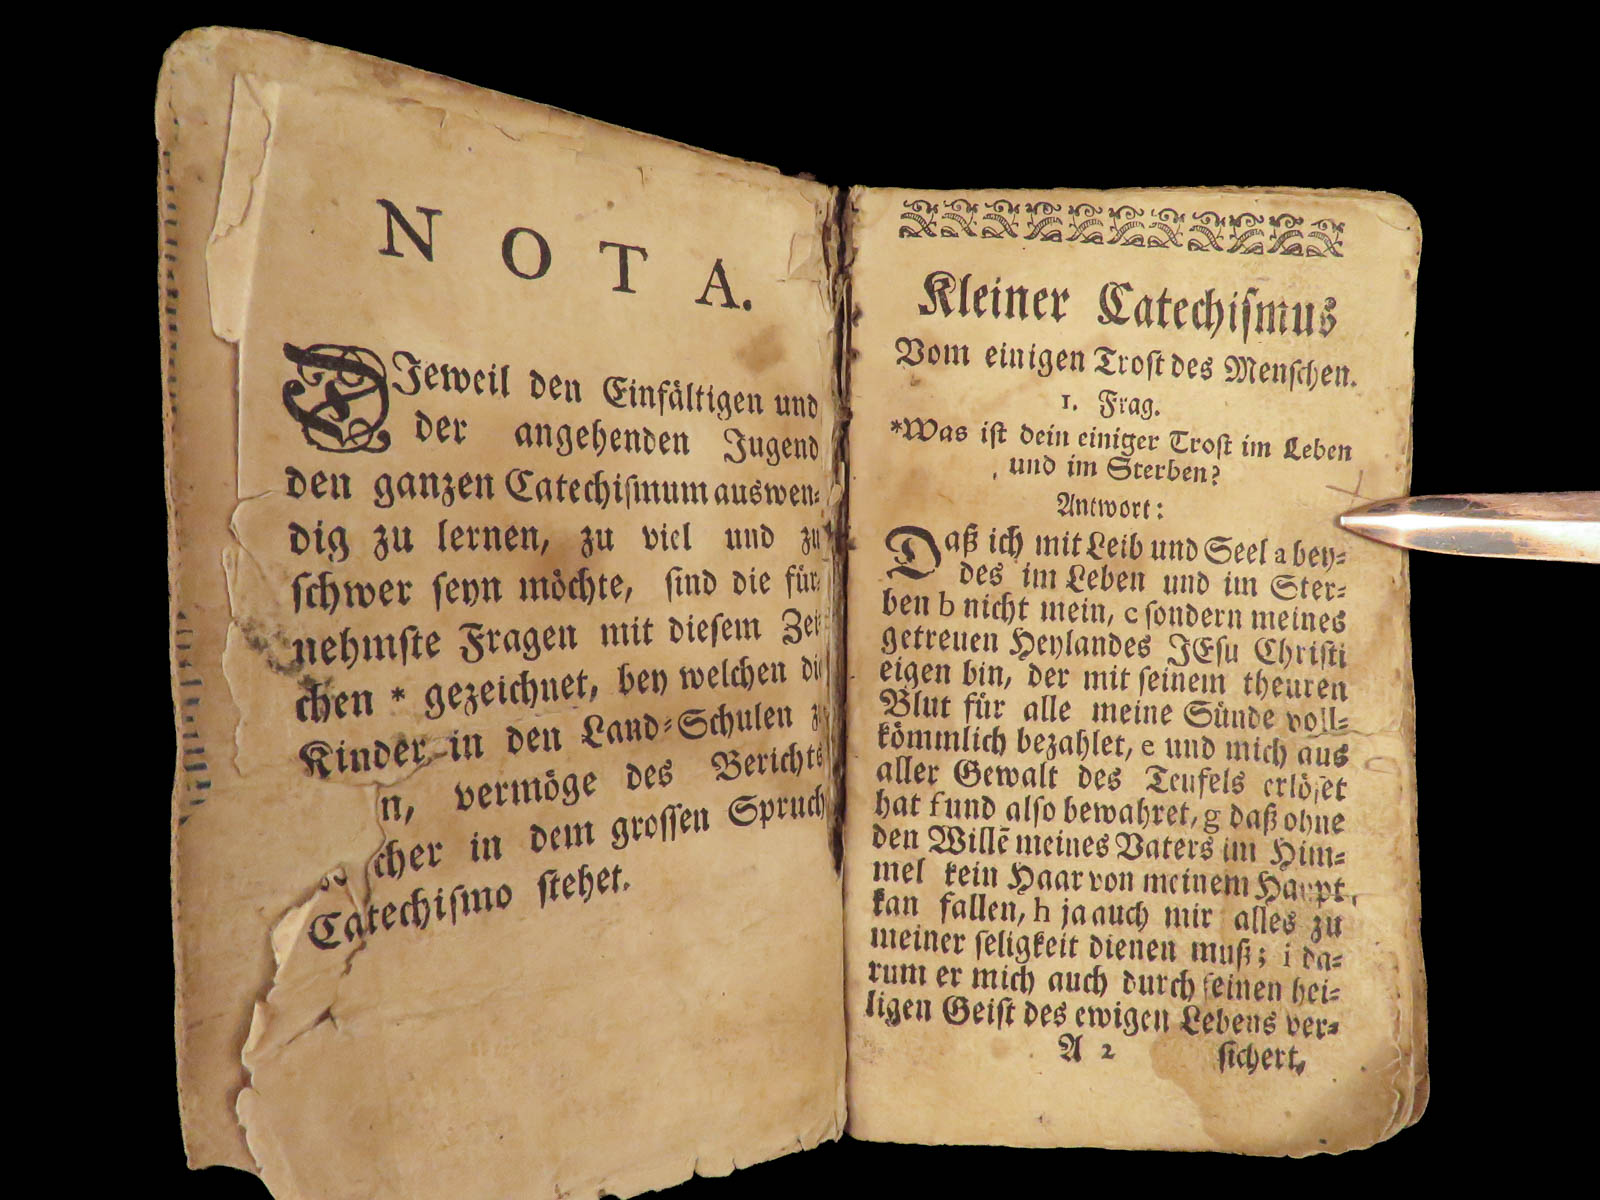 NOTA.
DJeweil den Einfältigen und
der angehenden Jugend
den ganzen Catechismum auswen⸗
dig zu lernen, zu viel und zu
schwer seyn möchte, sind die für⸗
nehmste Fragen mit diesem Zei⸗
chen * gezeichnet, bey welchen
Kinder in den Land⸗Schulen
vermöge des Berichts
in dem grossen Spruch
Catechismo stehet.
Kleiner Catechismus
Vom einigen Trost des Menschen.
1. Frag.
*Was ist dein einiger Trost im Leben
und im Sterben?
Antwort:
Daß ich mit Leib und Seel a bey⸗
des im Leben und im Ster⸗
ben b nicht mein, c sondern meines
getreuen Heylandes JEsu Christi
eigen bin, der mit seinem theuren
Blut für alle meine Sünde voll⸗
kömmlich bezahlet, e und mich aus
aller Gewalt des Teufels erlöset
hat f und also bewahret, g daß ohne
den Willē meines Vaters im Him⸗
mel kein Haar von meinem Haupt
kan fallen, h ja auch mir alles zu
meiner seligkeit dienen muß; i da⸗
rum er mich auch durch seinen hei⸗
ligen Geist des ewigen Lebens ver⸗
A 2 sichert,